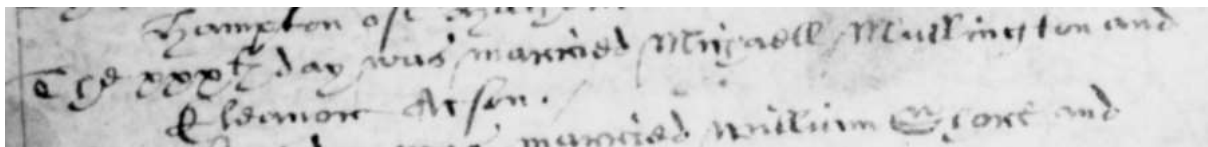 Hampton of
The xxxth day was married Myhaell Mullington and
Eleanor Atson.
married William and